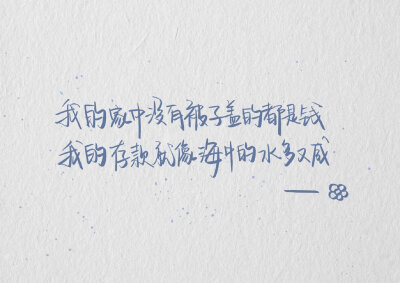 我的家中没有被子盖的都是钱
我的存款就像海中的水多又咸